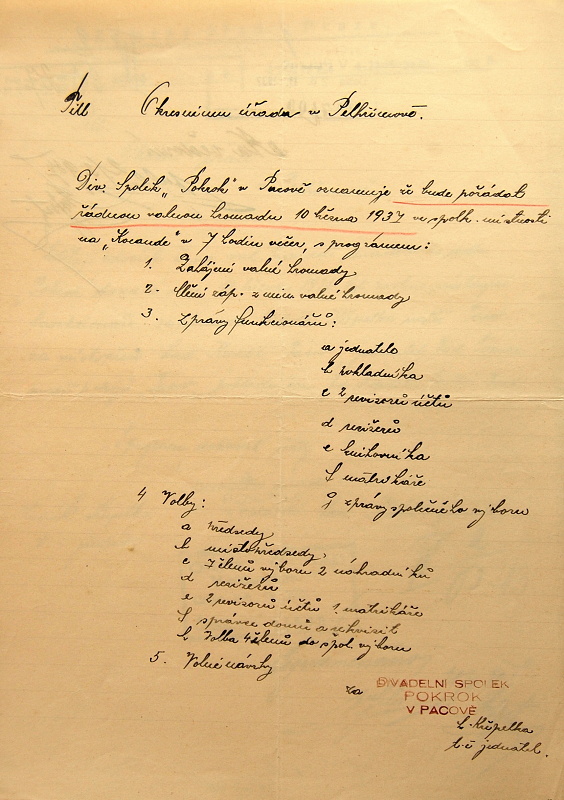 Pttl Okresnímu úřadu v Pelhřimově.
Div. Spolek „Pokrok" v Pacově oznamuje že bude pořádat
řádnou valnou hromadu 10 března 1937 ve spolk. místnosti
na „Kocandě" v 7 hodin večer, s prográmem:
1. Zahájení valné hromady
2. Čtení záp. z min valné hromady
3. zprávy funkcionářů:
a jednatele
b pokladníka
c 2 revisorů účtů
d režisérů
e knihovníka
f matrikáře
g zprávy společného výboru
4 Volby:
a předsedy
b místopředsedy,
c 7 členů výboru 2 náhradníků
d režisérů
e 2 revisorů účtů 1. matrikáře
f správce domů a rekvisit
h Volba 4 členů do spol. výboru
5. Volné návrhy
za DIVADELNÍ SPOLEK
POKROK
V PACOVĚ
Křepelka
t.č jednatel.